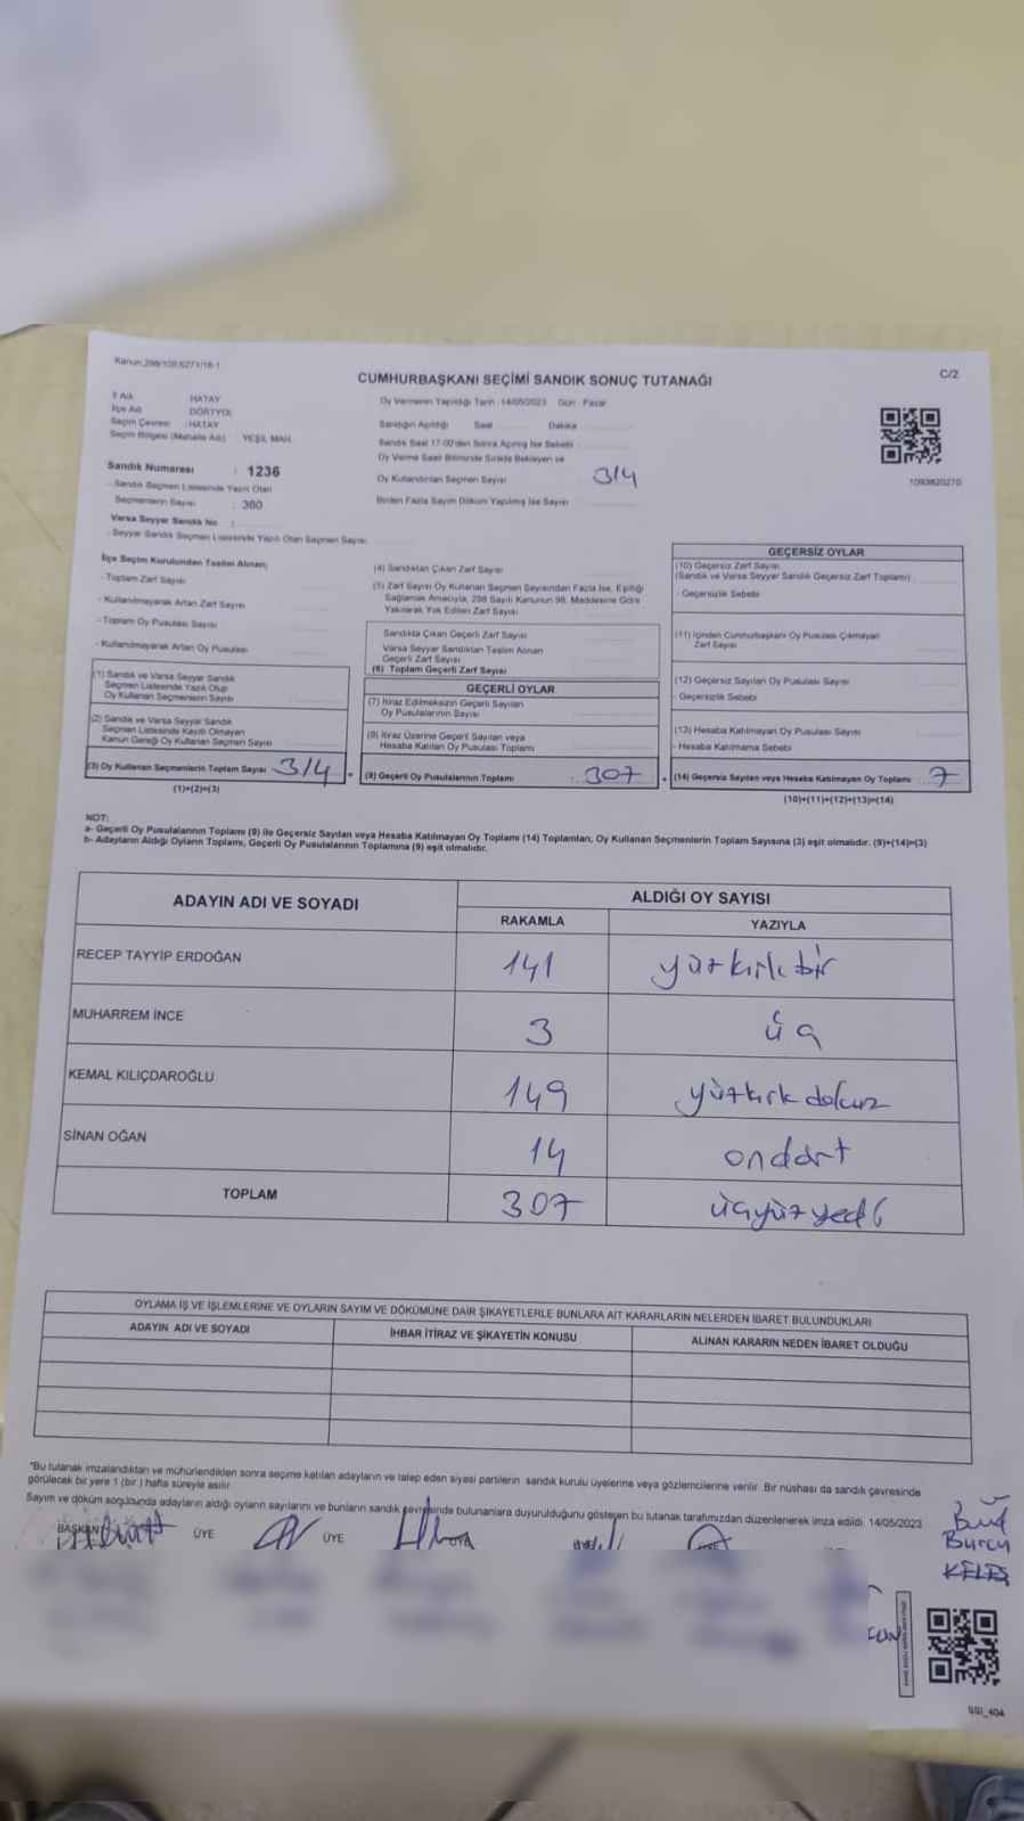 CUMHURBAŞKANI SEÇİMİ SANDIK SONUÇ TUTANAĞI
C/2
İl Adı HATAY
İlçe Adı DÖRTYOL
Seçim Çevresi : HATAY
Seçim Bölgesi (Mahalle Adı) YEŞİL MAH.
Sandık Numarası : 1236
Sandık Seçmen Listesinde Yazılı Olan
Seçmenlerin Sayısı : 380
Varsa Seyyar Sandık No :
- Seyyar Sandık Seçmen Listesinde Yazılı Olan Seçmen Sayısı
Oy Vermenin Yapıldığı Tarih : 14/05/2023 Gün : Pazar
Sandığın Açıldığı Saat Dakika
Sandık Saat 17:00'den Sonra Açılmış İse Sebebi
Oy Verme Saati Bitiminde Sırada Bekleyen ve
Oy Kullandırılan Seçmen Sayısı 314
Birden Fazla Sayım Döküm Yapılmış İse Sayısı
İlçe Seçim Kurulundan Teslim Alınan;
- Toplam Zarf Sayısı
- Kullanılmayarak Artan Zarf Sayısı
- Toplam Oy Pusulası Sayısı
- Kullanılmayarak Artan Oy Pusulası
(1) Sandık ve Varsa Seyyar Sandık
Seçmen Listesinde Yazılı Olup
Oy Kullanan Seçmenlerin Sayısı
(2) Sandık ve Varsa Seyyar Sandık
Seçmen Listesinde Kayıtlı Olmayan
Kanun Gereği Oy Kullanan Seçmen Sayısı
(3) Oy Kullanan Seçmenlerin Toplam Sayısı 314
(1)+(2)=(3)
(4) Sandıktan Çıkan Zarf Sayısı
(5) Zarf Sayısı Oy Kullanan Seçmen Sayısından Fazla İse, Eşitliği
Sağlamak Amacıyla, 298 Sayılı Kanunun 98. Maddesine Göre
Yakılarak Yok Edilen Zarf Sayısı
Sandıkta Çıkan Geçerli Zarf Sayısı
Varsa Seyyar Sandıktan Teslim Alınan
Geçerli Zarf Sayısı
(6) Toplam Geçerli Zarf Sayısı
GEÇERLİ OYLAR
(7) İtiraz Edilmeksizin Geçerli Sayılan
Oy Pusulalarının Sayısı
(8) İtiraz Üzerine Geçerli Sayılan veya
Hesaba Katılan Oy Pusulası Toplamı
(9) Geçerli Oy Pusulalarının Toplamı : 307
1093820270
GEÇERSİZ OYLAR
(10) Geçersiz Zarf Sayısı
(Sandık ve Varsa Seyyar Sandık Geçersiz Zarf Toplamı)
- Geçersizlik Sebebi
(11) İçinden Cumhurbaşkanı Oy Pusulası Çıkmayan
Zarf Sayısı
(12) Geçersiz Sayılan Oy Pusulası Sayısı
- Geçersizlik Sebebi
(13) Hesaba Katılmayan Oy Pusulası Sayısı
- Hesaba Katılmama Sebebi
(14) Geçersiz Sayılan veya Hesaba Katılmayan Oy Toplamı 7
(10)+(11)+(12)+(13)=(14)
NOT:
a- Geçerli Oy Pusulalarının Toplamı (9) ile Geçersiz Sayılan veya Hesaba Katılmayan Oy Toplamı (14) Toplamları, Oy Kullanan Seçmenlerin Toplam Sayısına (3) eşit olmalıdır. (9)+(14)=(3)
b- Adayların Aldığı Oyların Toplamı, Geçerli Oy Pusulalarının Toplamına (9) eşit olmalıdır.
ADAYIN ADI VE SOYADI
ALDIĞI OY SAYISI
RAKAMLA YAZIYLA
RECEP TAYYİP ERDOĞAN 141 yüzkırk bir
MUHARREM İNCE 3 üç
KEMAL KILIÇDAROĞLU 149 yüzkırk dokuz
SİNAN OĞAN 14 ondört
TOPLAM 307 üçyüz yedi
OYLAMA İŞ VE İŞLEMLERİNE VE OYLARIN SAYIM VE DÖKÜMÜNE DAİR ŞİKAYETLERLE BUNLARA AİT KARARLARIN NELERDEN İBARET BULUNDUKLARI
ADAYIN ADI VE SOYADI İHBAR İTİRAZ VE ŞİKAYETİN KONUSU ALINAN KARARIN NEDEN İBARET OLDUĞU
"Bu tutanak imzalandıktan ve mühürlendikten sonra seçime katılan adayların ve talep eden siyasi partilerin sandık kurulu üyelerine veya gözlemcilerine verilir. Bir nüshası da sandık çevresinde
görülecek bir yere 1 (bir ) hafta süreyle asılır.
Sayım ve döküm sonucunda adayların aldığı oyların sayılarını ve bunların sandık çevresinde bulunanlara duyurulduğunu gösteren bu tutanak tarafımızdan düzenlenerek imza edildi. 14/05/2023
BAŞKAN ÜYE ÜYE
Burcu
KELEŞ